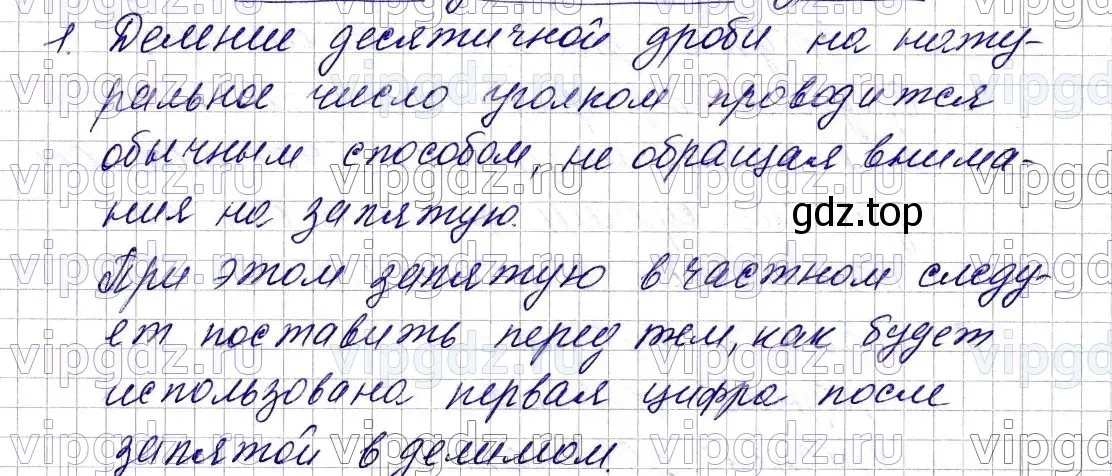 1. Деление десятичной дроби на нату-
ральное число уголком проводится
обычным способом, не обращая внима-
ния на запятую.
gdz.top
При этом запятую в частном следу-
ет поставить перед тем, как будет
использована первая цифра после
запятой в делимом.